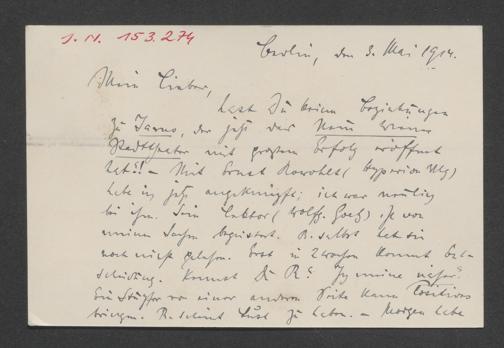 J. N. 153.274
Berlin, den 3. Mai 1914.
Mein Lieber,
hast Du keine Beziehungen
zu Jarno, der jetzt das Neue Wiener
Stadttheater mit großem Erfolg eröffnet
hat?! – Mit Ernst Rowohlt (Hyperion Vlg)
habe ich jetzt angeknüpft; ich war neulich
bei ihm. Sein Lektor (Wolfg. Goetz) ist von
meinen Sachen begeistert. R. selbst hat sie
noch nicht gelesen. Erst in 2 Wochen kommt Ent-
scheidung. Kennst Du R?
Ein von einer anderen Seite kann Positives
bringen. R. scheint Lust zu haben. – Morgen habe